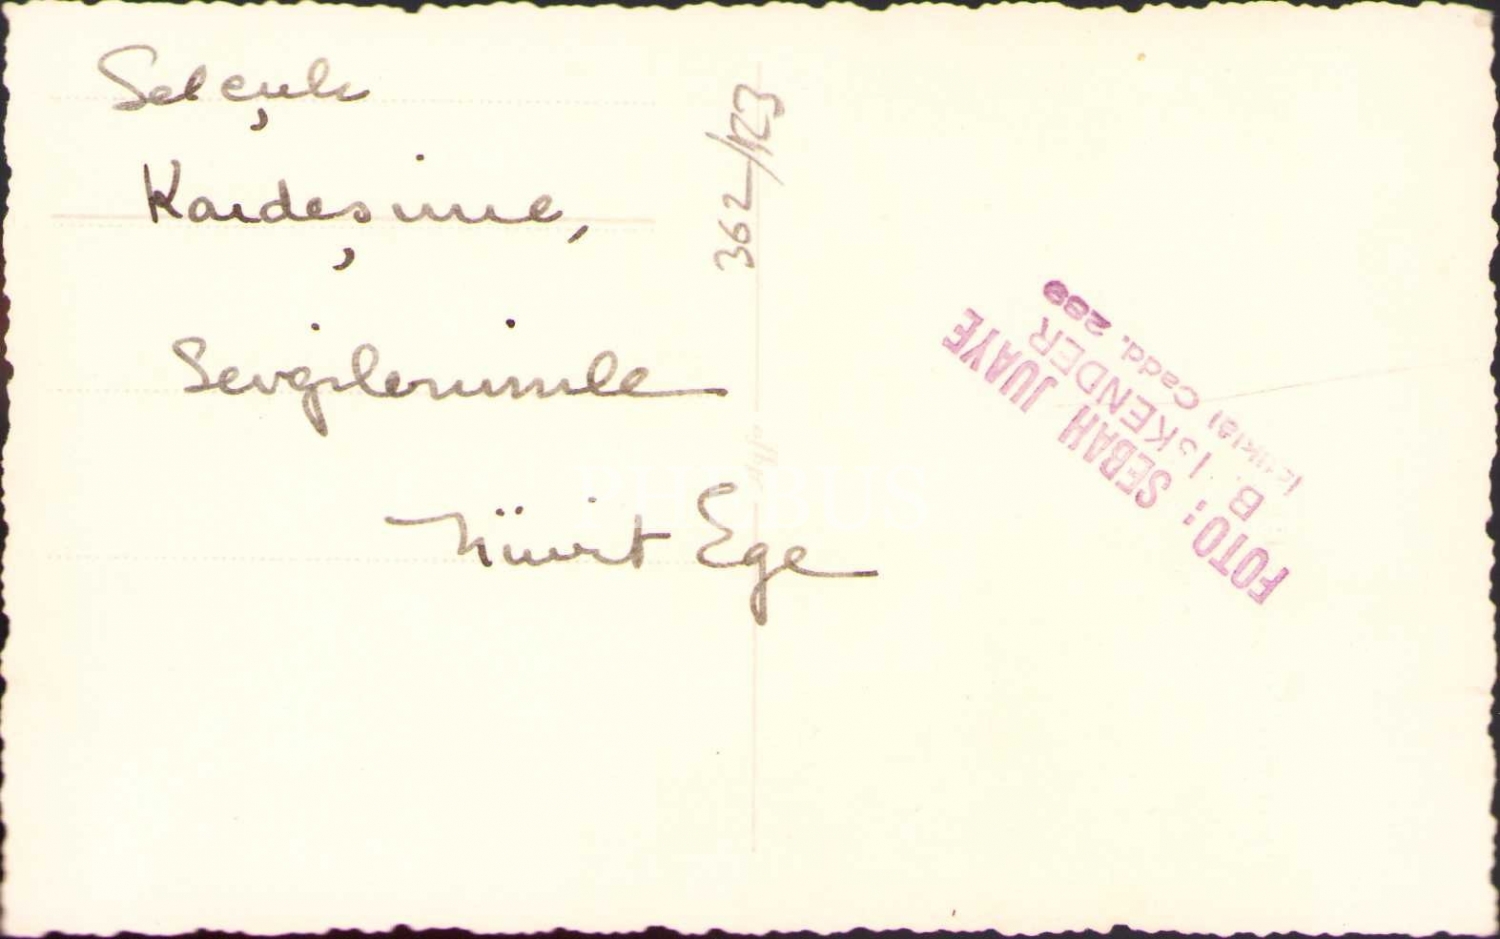 Selçuk
Kardeşime,
Sevgilerimle
Ege
362/123
FOTO: SEBAH JUAYE
B. İSKENDER
İstiklâl Cadd. 289